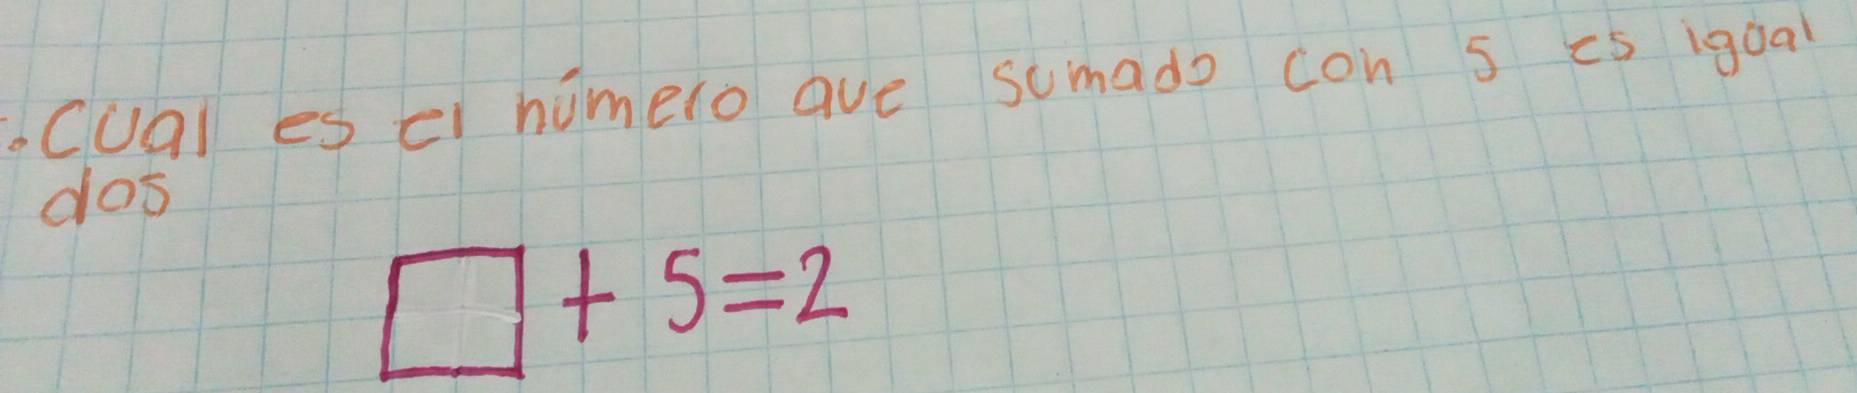 .CUal es el número que sumado con 5 es igual
dos
□ + 5 = 2